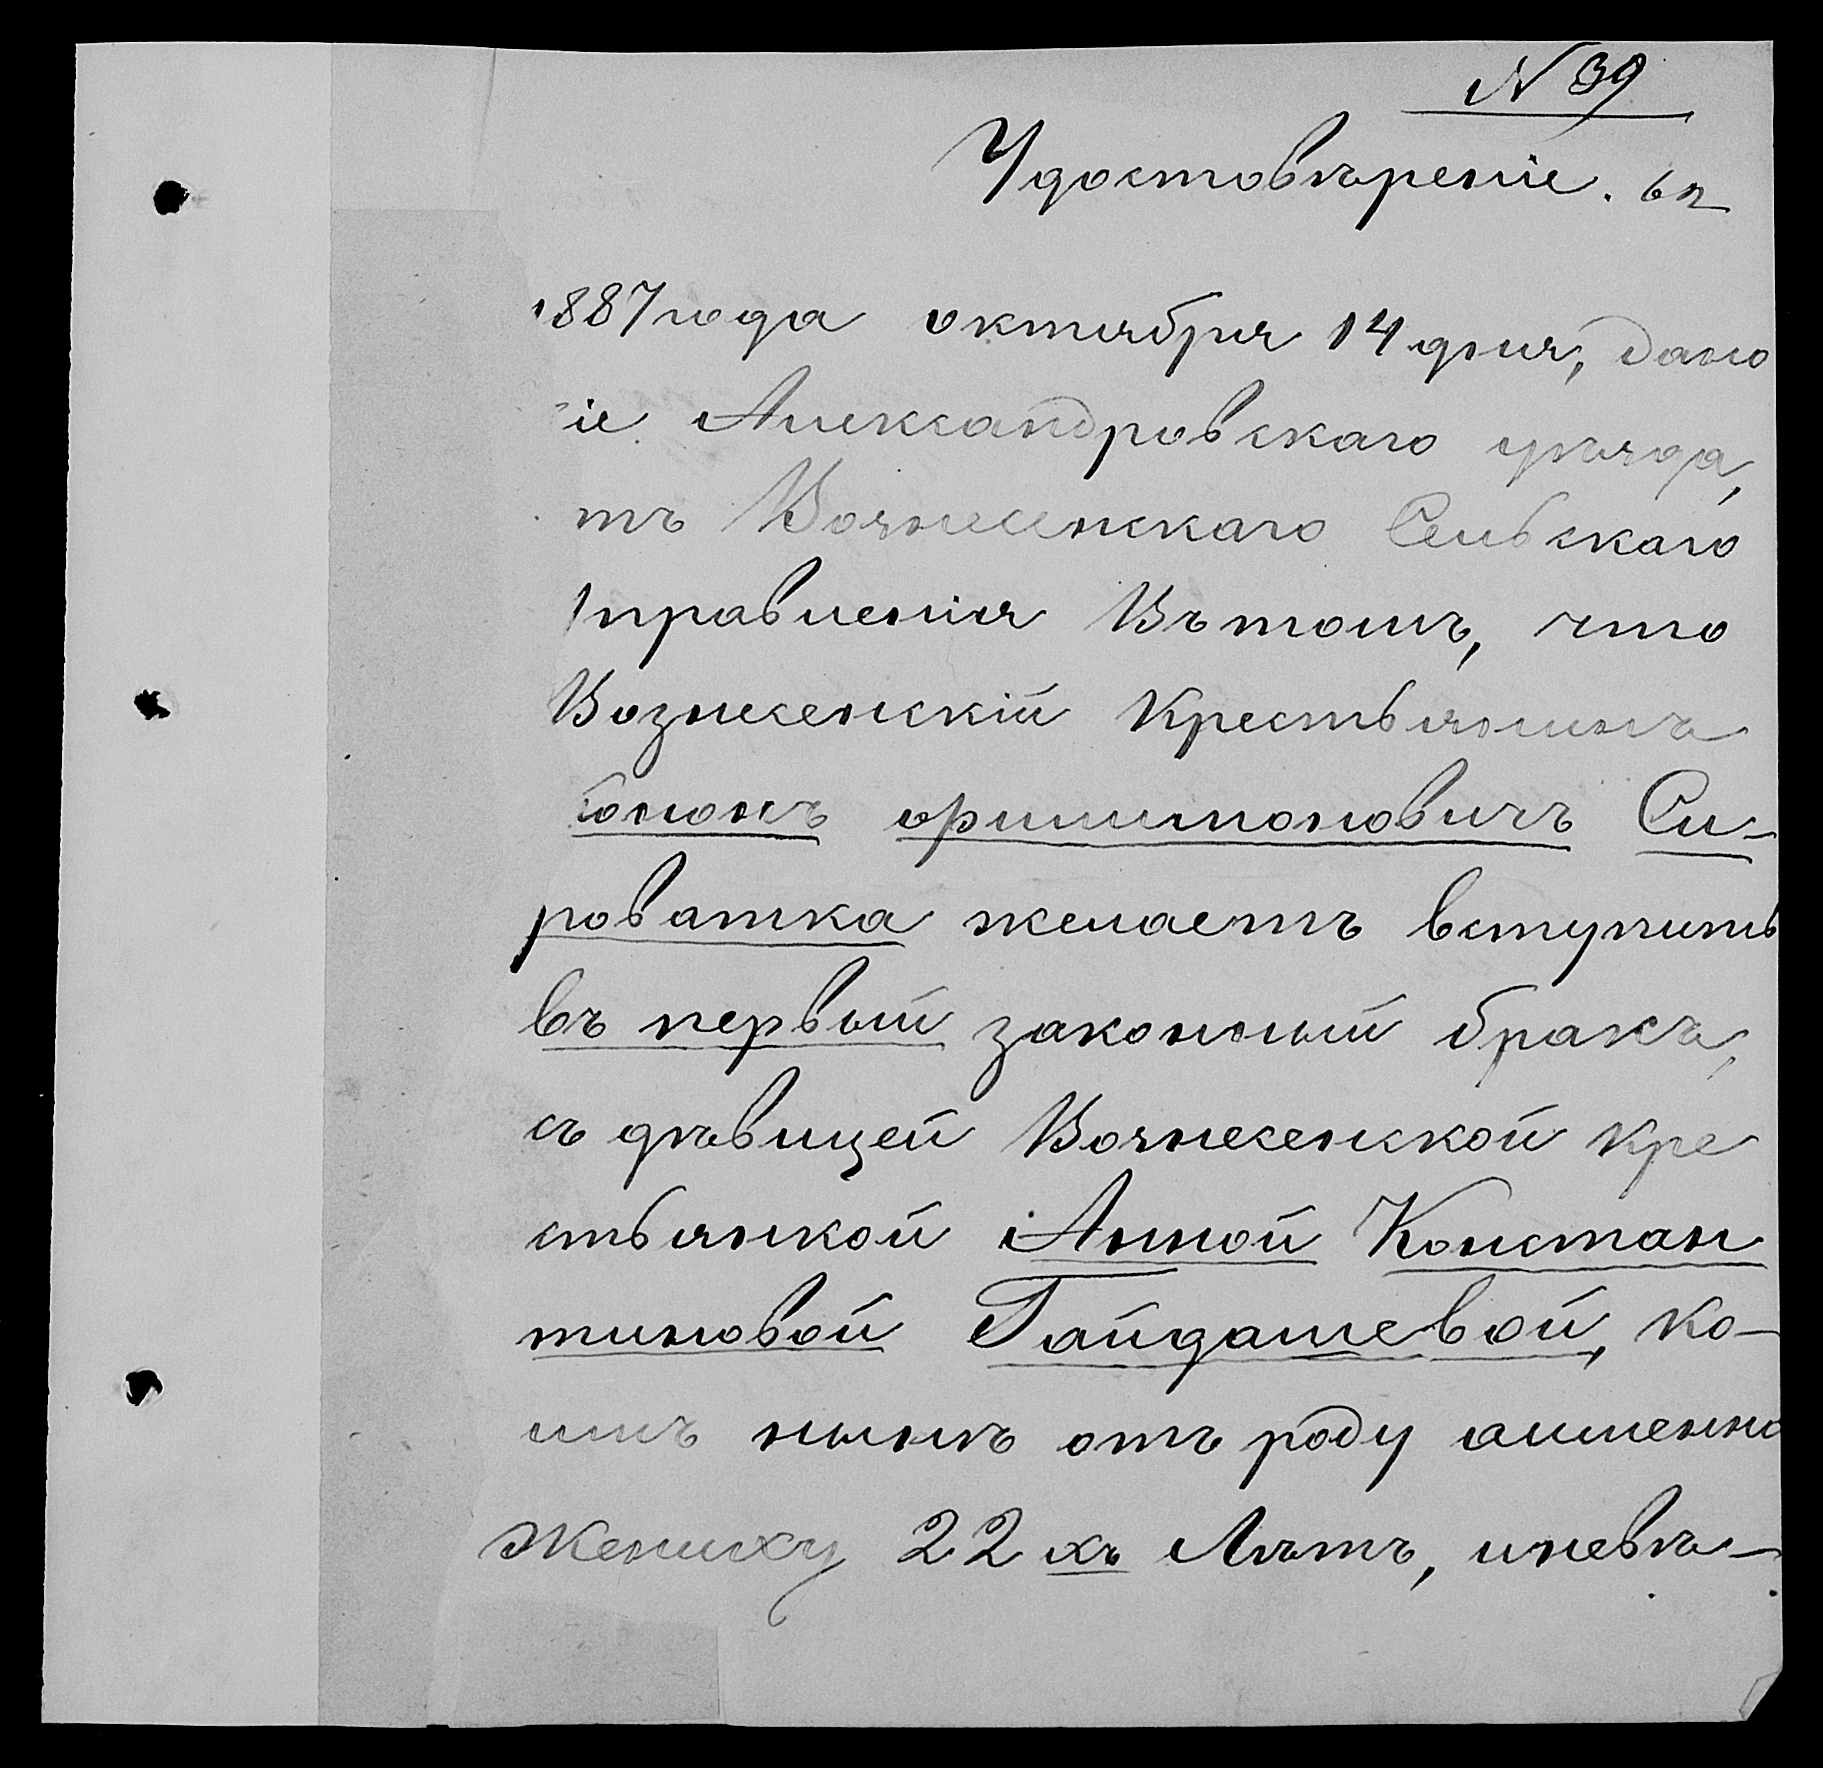 N 39
Удостовѣреніе. 62
1887 года октября 14 дня, дано
іе Александровскаго уѣзда,
тъ Вознесенскаго Сельскаго
правленія Въ томъ, что
Вознесенскій Крестьянинъ
Кононъ Филимоновичъ Си-
роватка желаетъ вступить
въ первый законный бракъ,
съ дѣвицей Вознесенской Кре
стьянкой Анной Констан
тиновой Гайдашевой, ко-
имъ нынѣ отъ роду аименно
Жениху 22 хъ Лѣтъ, иневѣ-